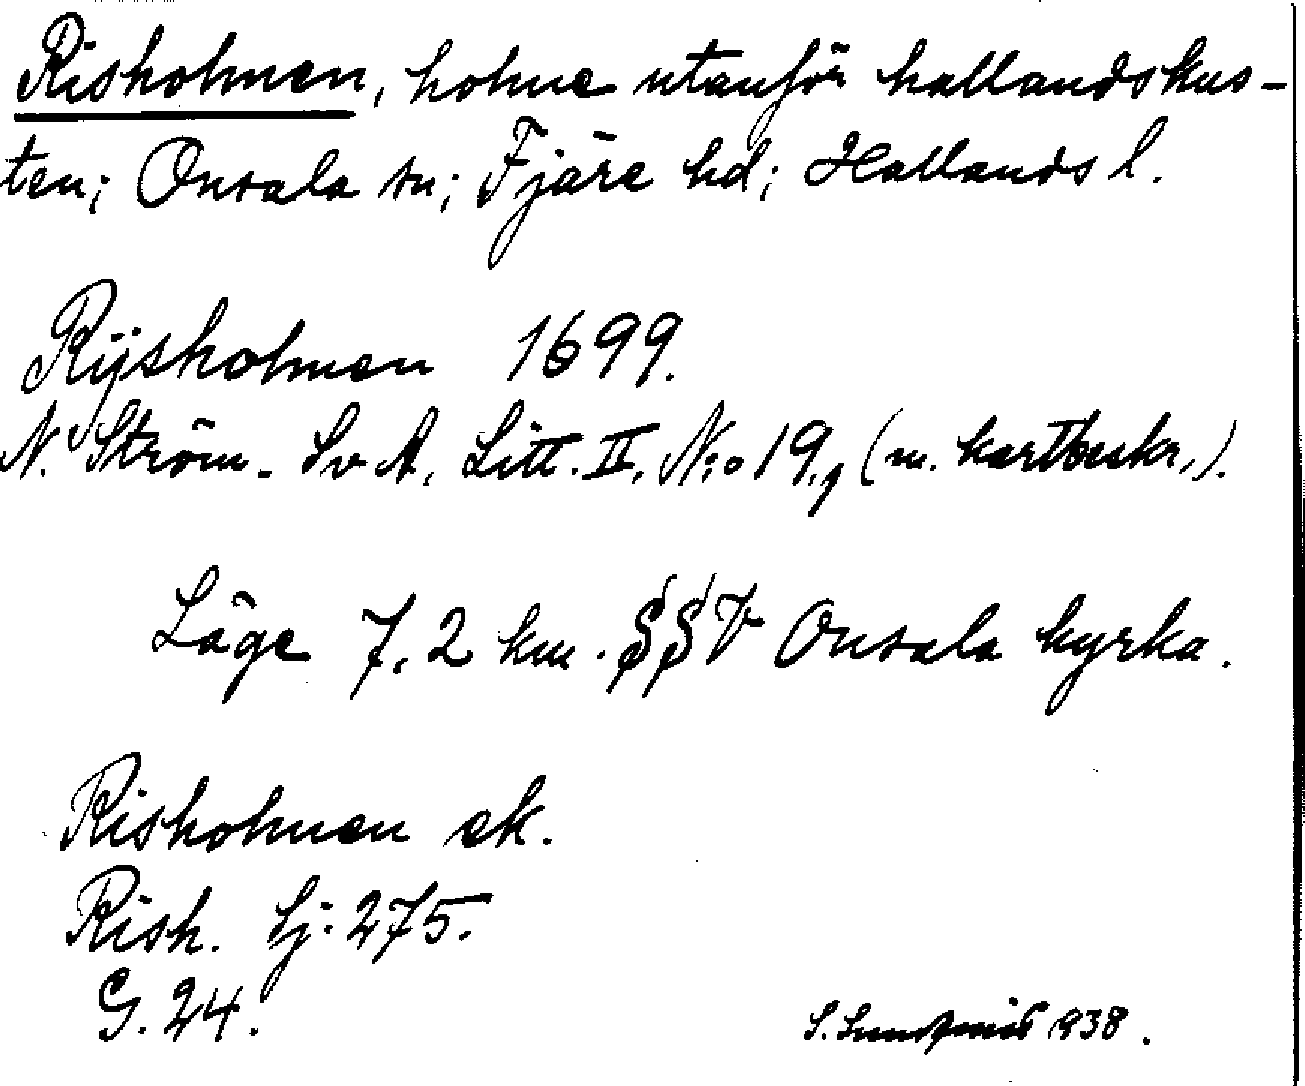 Risholmen, holme utanför hallandskus-
ten; Onsala sn; Fjäre hd; Hallands l.
Rÿsholmen 1699.
N. Ström. Sv A. Litt. II. N:o 19, (m. kartbeskr.).
Läge 7.2 km. SSV Onsala kyrka.
Risholmen ek.
Rish. Sj: 275.
G. 24.
S. Lundqvist 1938.